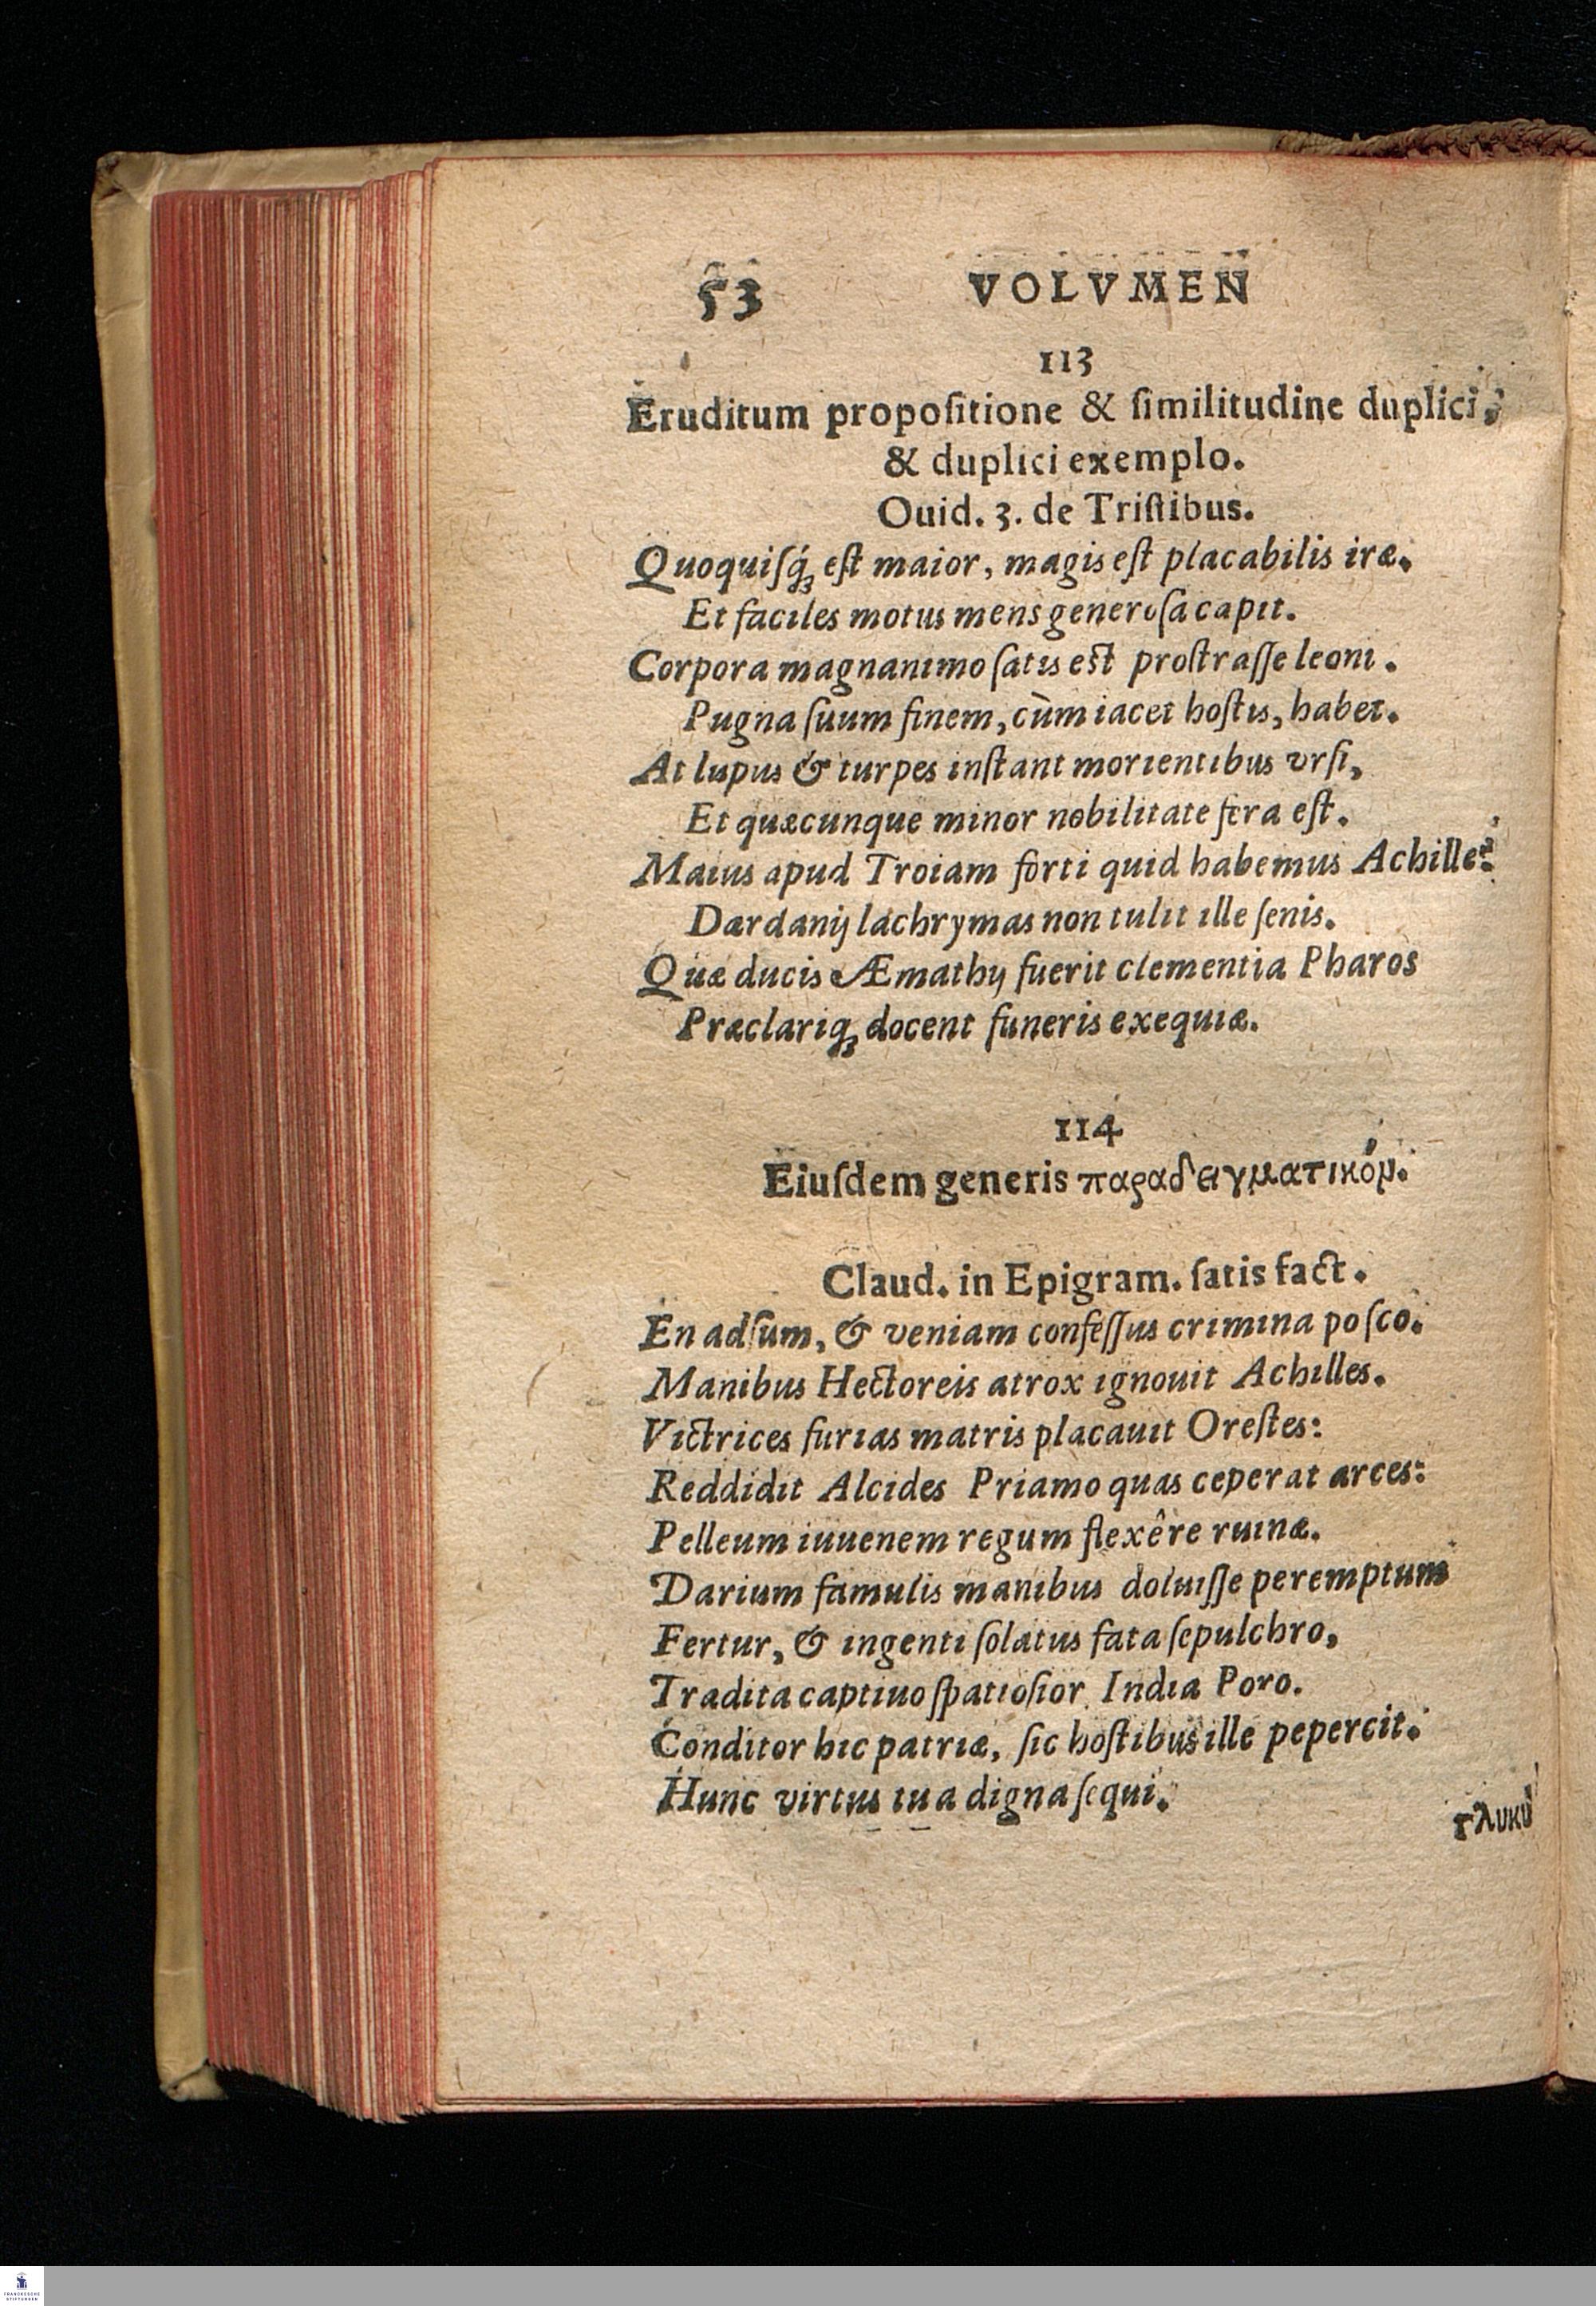 53 VOLVMEN
113
Eruditum propoſitione & ſimilitudine duplici,
& duplici exemplo.
Ouid. 3. de Triſtibus.
Quoquiſq́; eſt maior, magis eſt placabilis iræ.
Et faciles motus mens generoſa capit.
Corpora magnanimo ſatis eſt proſtraſſe leoni.
Pugna ſuum finem, cùm iacet hoſtis, habet.
At lupus & turpes inſtant morientibus vrſi,
Et quæcunque minor nobilitate fera eſt.
Maius apud Troiam forti quid habemus Achille?
Dardanij lachrymas non tulit ille ſenis.
Quæ ducis Æmathij fuerit clementia Pharos
Præclariq; docent funeris exequiæ.
114
Eiuſdem generis παραδειγματικόν.
Claud. in Epigram. ſatis fact.
En adſum, & veniam confeſſus crimina poſco.
Manibus Hectoreis atrox ignouit Achilles.
Victrices furias matris placauit Oreſtes:
Reddidit Alcides Priamo quas ceperat arces:
Pelleum iuuenem regum flexêre ruinæ.
Darium famulis manibus doluiſſe peremptum
Fertur, & ingenti ſolatus fata ſepulchro,
Tradita captiuo ſpatioſior India Poro.
Conditor hic patriæ, ſic hoſtibus ille pepercit.
Hunc virtus tua digna ſequi.
γλυκὺ
FRANCKESCHE
STIFTUNGEN